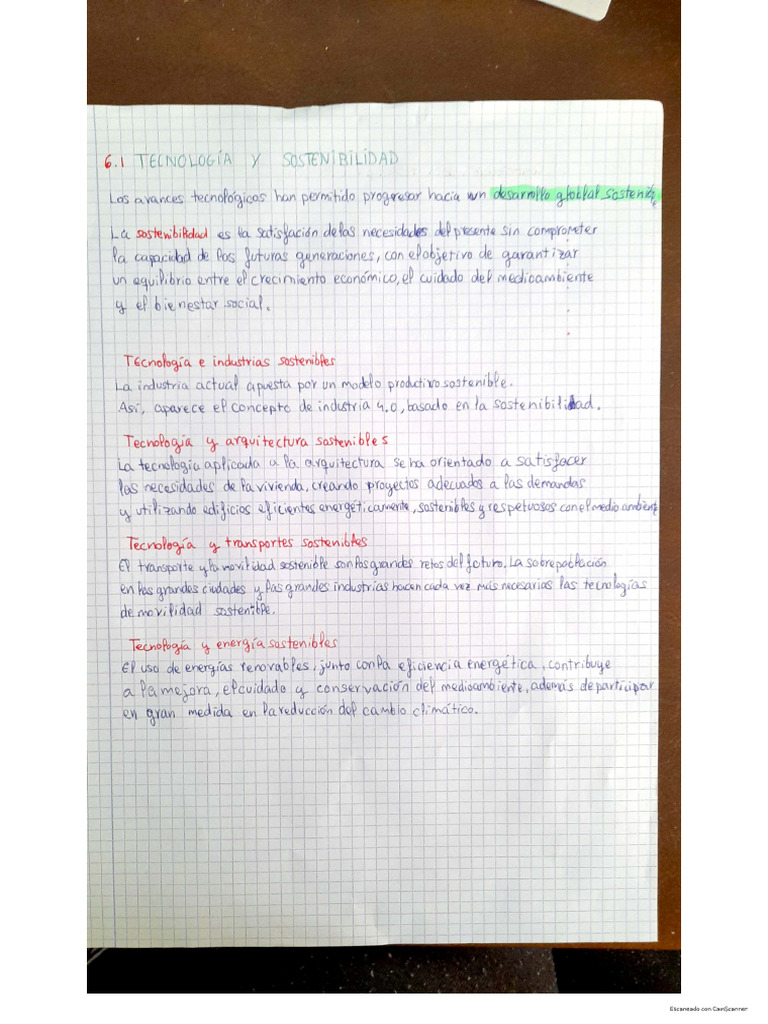 6.1 TECNOLOGÍA Y SOSTENIBILIDAD
Los avances tecnológicos han permitido progresar hacia un desarrollo global sostenible
La sostenibilidad es la satisfación de las necesidades del presente sin comprometer
la capacidad de las futuras generaciones, con el objetivo de garantizar
un equilibrio entre el crecimiento económico, el cuidado del medioambiente
y el bienestar social.
Tecnología e industrias sostenibles
La industria actual apuesta por un modelo productivo sostenible.
Así, aparece el concepto de industria 4.0, basado en la sostenibilidad.
Tecnología y arquitectura sostenibles
La tecnología aplicada a la arquitectura se ha orientado a satisfacer
las necesidades de la vivienda, creando proyectos adecuados a las demandas
y utilizando edificios eficientes energéticamente, sostenibles y respetuosos con el medio ambiente
Tecnología y transportes sostenibles
El transporte y la movilidad sostenible son los grandes retos del futuro. La sobrepoblación
en las grandes ciudades y las grandes industrias hacen cada vez más necesarias las tecnologías
de movilidad sostenible.
Tecnología y energía sostenibles
El uso de energías renovables, junto con la eficiencia energética, contribuye
a la mejora, el cuidado y conservación del medioambiente, además de participar
en gran medida en la reducción del cambio climático.
Escaneado con CamScanner